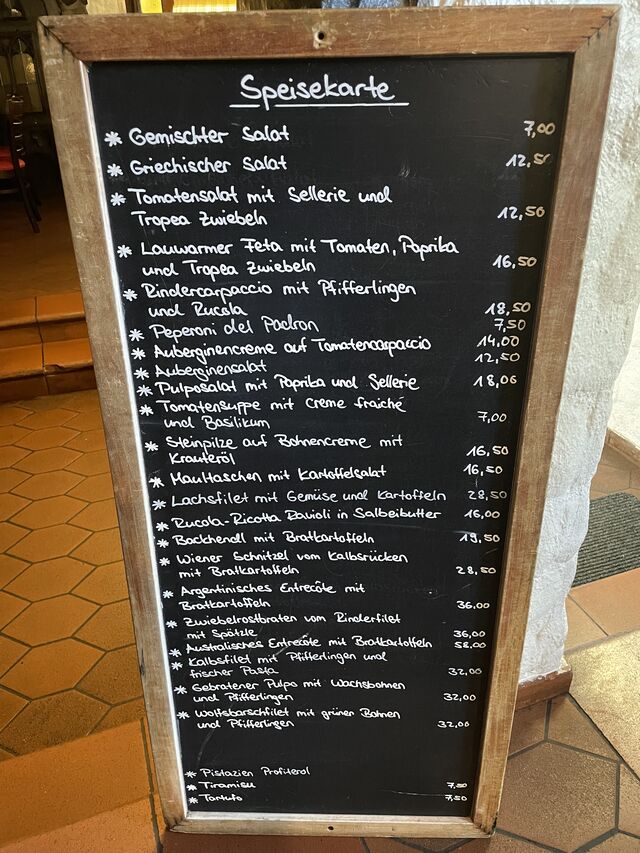 Speisekarte
* Gemischter Salat 7,00
* Griechischer Salat 12,50
* Tomatensalat mit Sellerie und
Tropea Zwiebeln 12,50
* Lauwarmer Feta mit Tomaten, Paprika
und Tropea Zwiebeln 16,50
* Rindercarpaccio mit Pfifferlingen
und Rucola 18,50
* Peperoni del Padron 7,50
* Auberginencreme auf Tomatencarpaccio 14,00
* Auberginensalat 12,50
* Pulposalat mit Paprika und Sellerie 18,00
* Tomatensuppe mit Creme fraiche
und Basilikum 7,00
* Steinpilze auf Bohnencreme mit
Kräuteröl 16,50
* Maultaschen mit Kartoffelsalat 16,50
* Lachsfilet mit Gemüse und Kartoffeln 28,50
* Rucola-Ricotta Ravioli in Salbeibutter 16,00
* Backhendl mit Bratkartoffeln 19,50
* Wiener Schnitzel vom Kalbsrücken
mit Bratkartoffeln 28,50
* Argentinisches Entrecôte mit
Bratkartoffeln 36,00
* Zwiebelrostbraten vom Rinderfilet
mit Spätzle 36,00
* Australisches Entrecôte mit Bratkartoffeln 58,00
* Kalbsfilet mit Pfifferlingen und
frischer Pasta 32,00
* Gebratener Pulpo mit Wachsbohnen
und Pfifferlingen 32,00
* Wolfsbarschfilet mit grüner Bohnen
und Pfifferlingen 32,00
* Pistazien Profiterol
* Tiramisu 7,50
* Tartufo 7,50